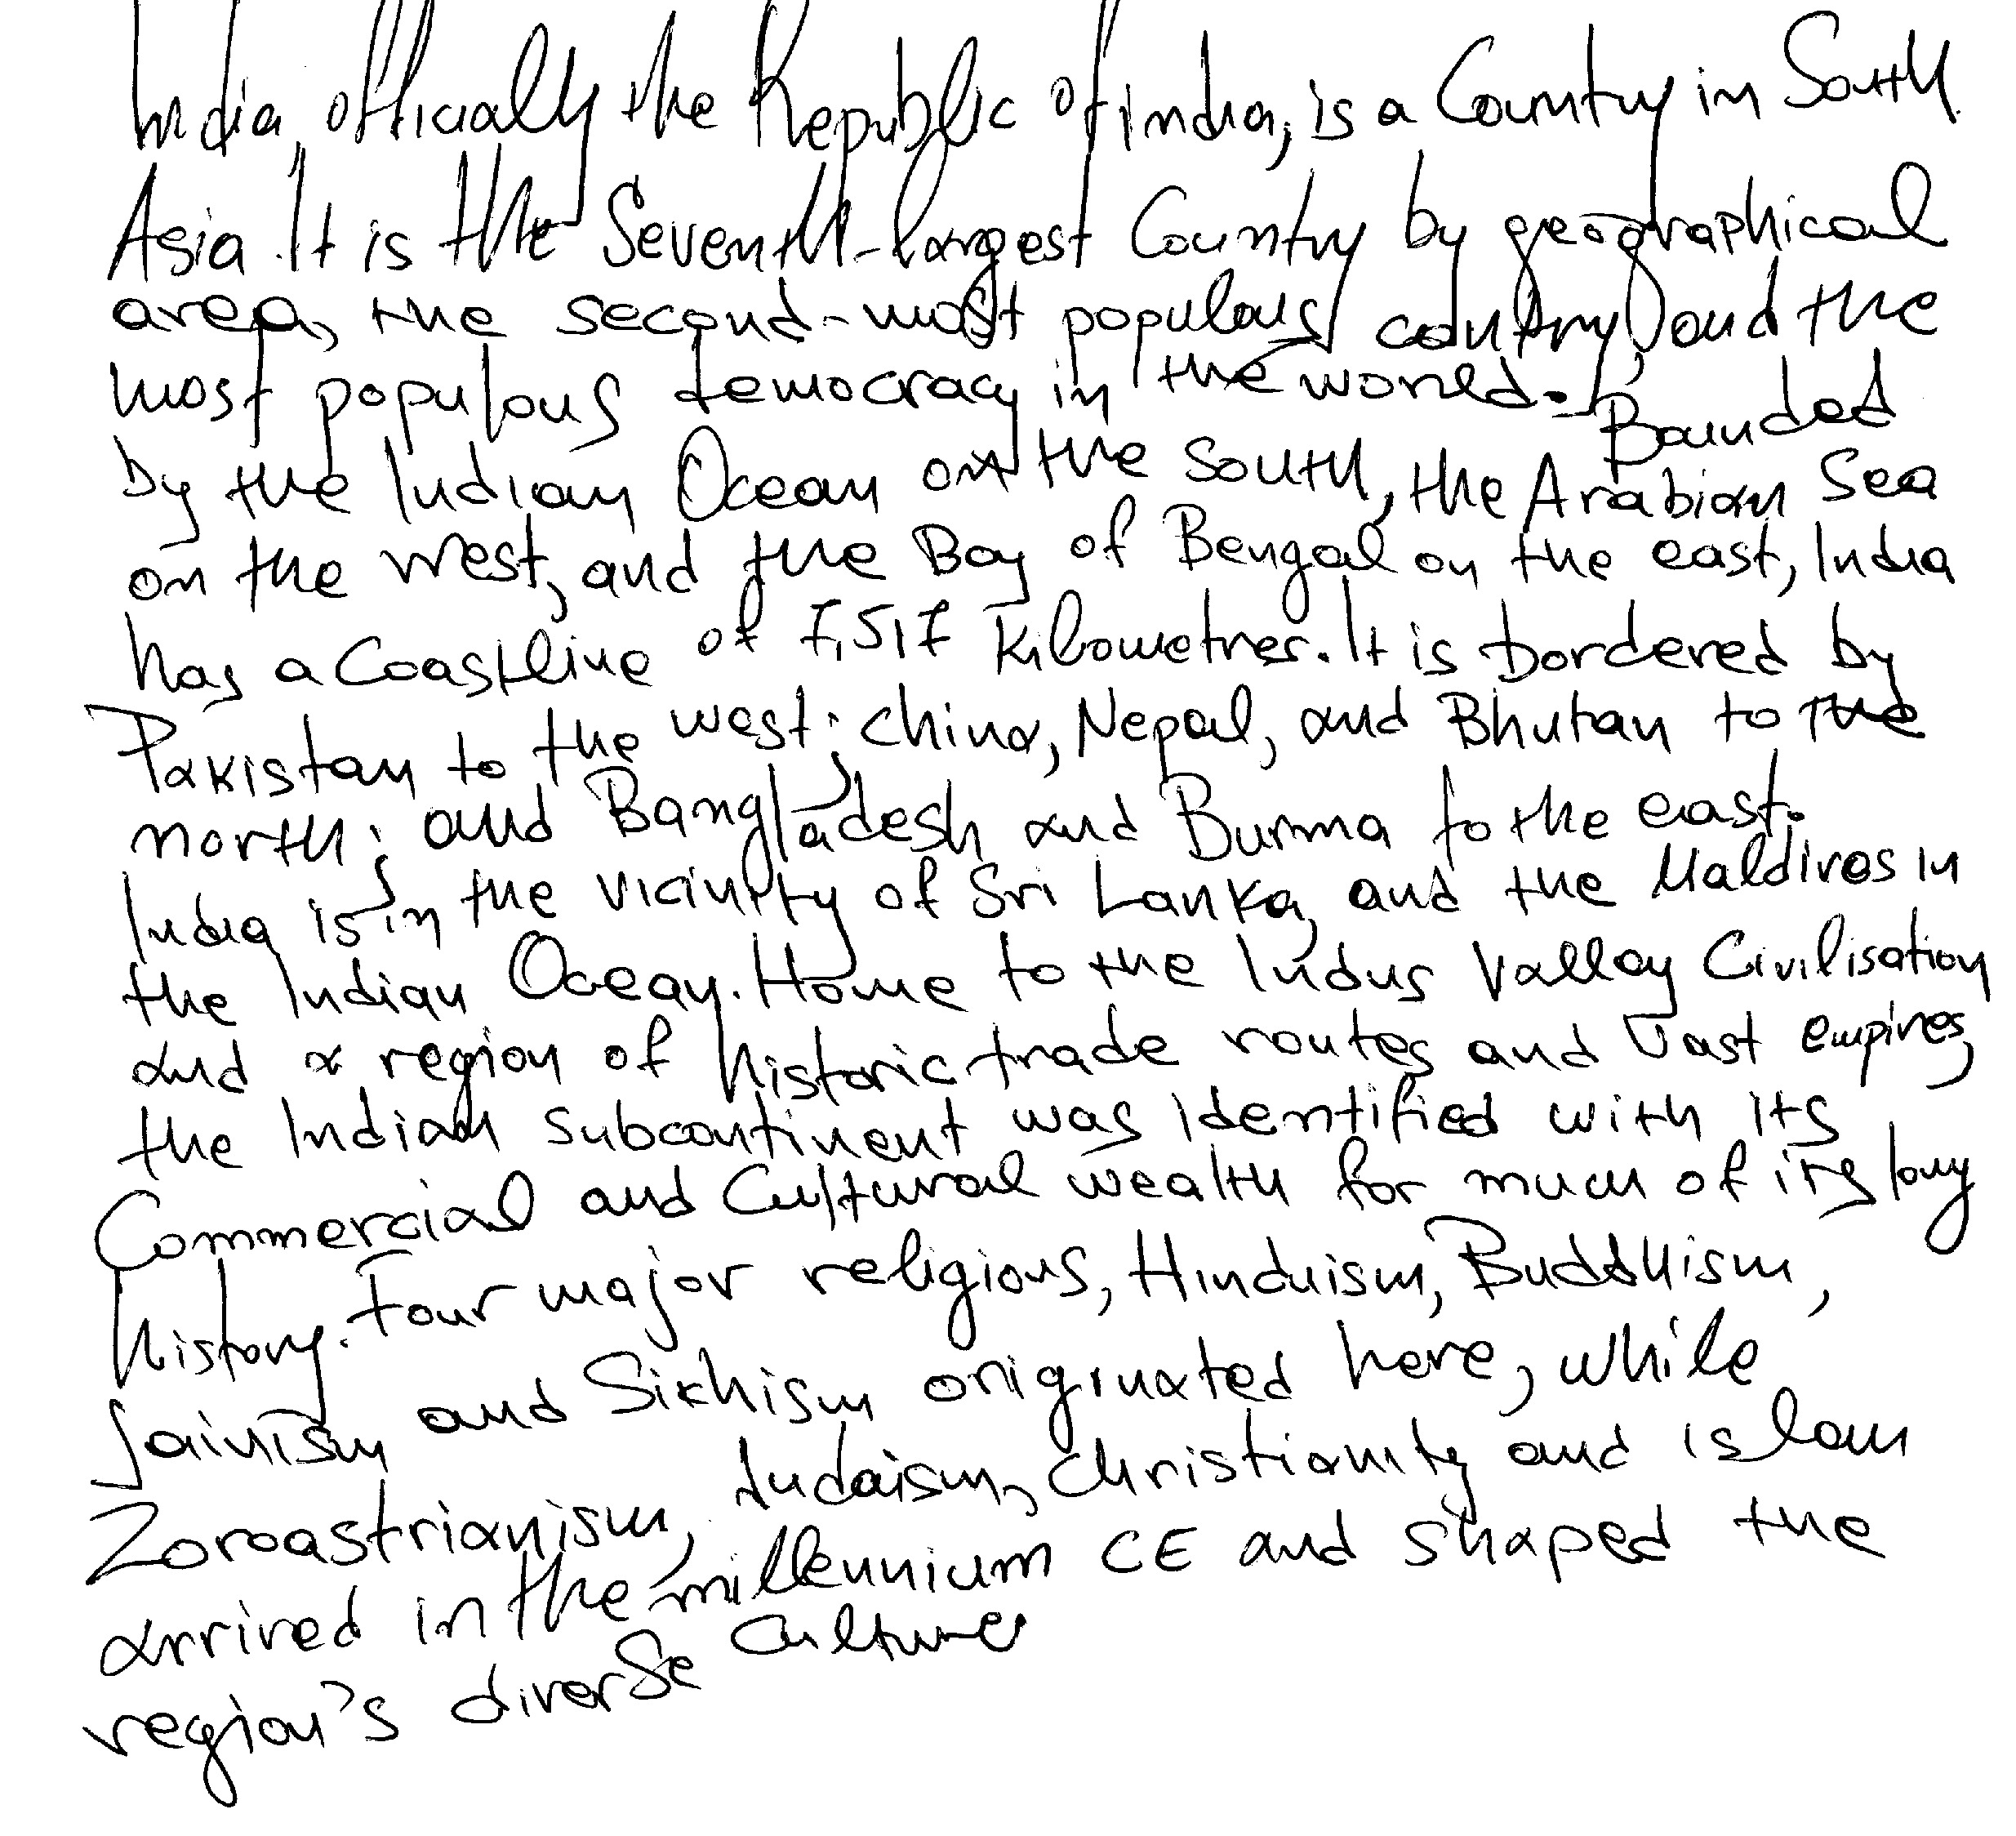 India, officially the Republic of india, is a Country in South
Asia. It is the Seventh-largest Country by geographical
area, the second-most populous country, and the
most populous democracy in the world. Bounded
by the Indian Ocean on the south, the Arabian Sea
on the west, and the Bay of Bengal on the east, India
has a Coastline of 7,517 kilometres. It is bordered by
Pakistan to the west; china, Nepal, and Bhutan to the
north; and Bangladesh and Burma to the east.
India is in the vicinity of Sri Lanka, and the Maldives in
the Indian Ocean. Home to the Indus Valley Civilisation
and a region of historic trade routes and Vast empires,
the Indian subcontinent was identified with its
Commercial and Cultural wealth for much of its long
history. Four major religious, Hinduism, Buddhism,
Jainism and Sikhism originated here, while
Zoroastrianism, Judaism, Christianity and islam
arrived in the millennium CE and shaped the
region's diverse culture